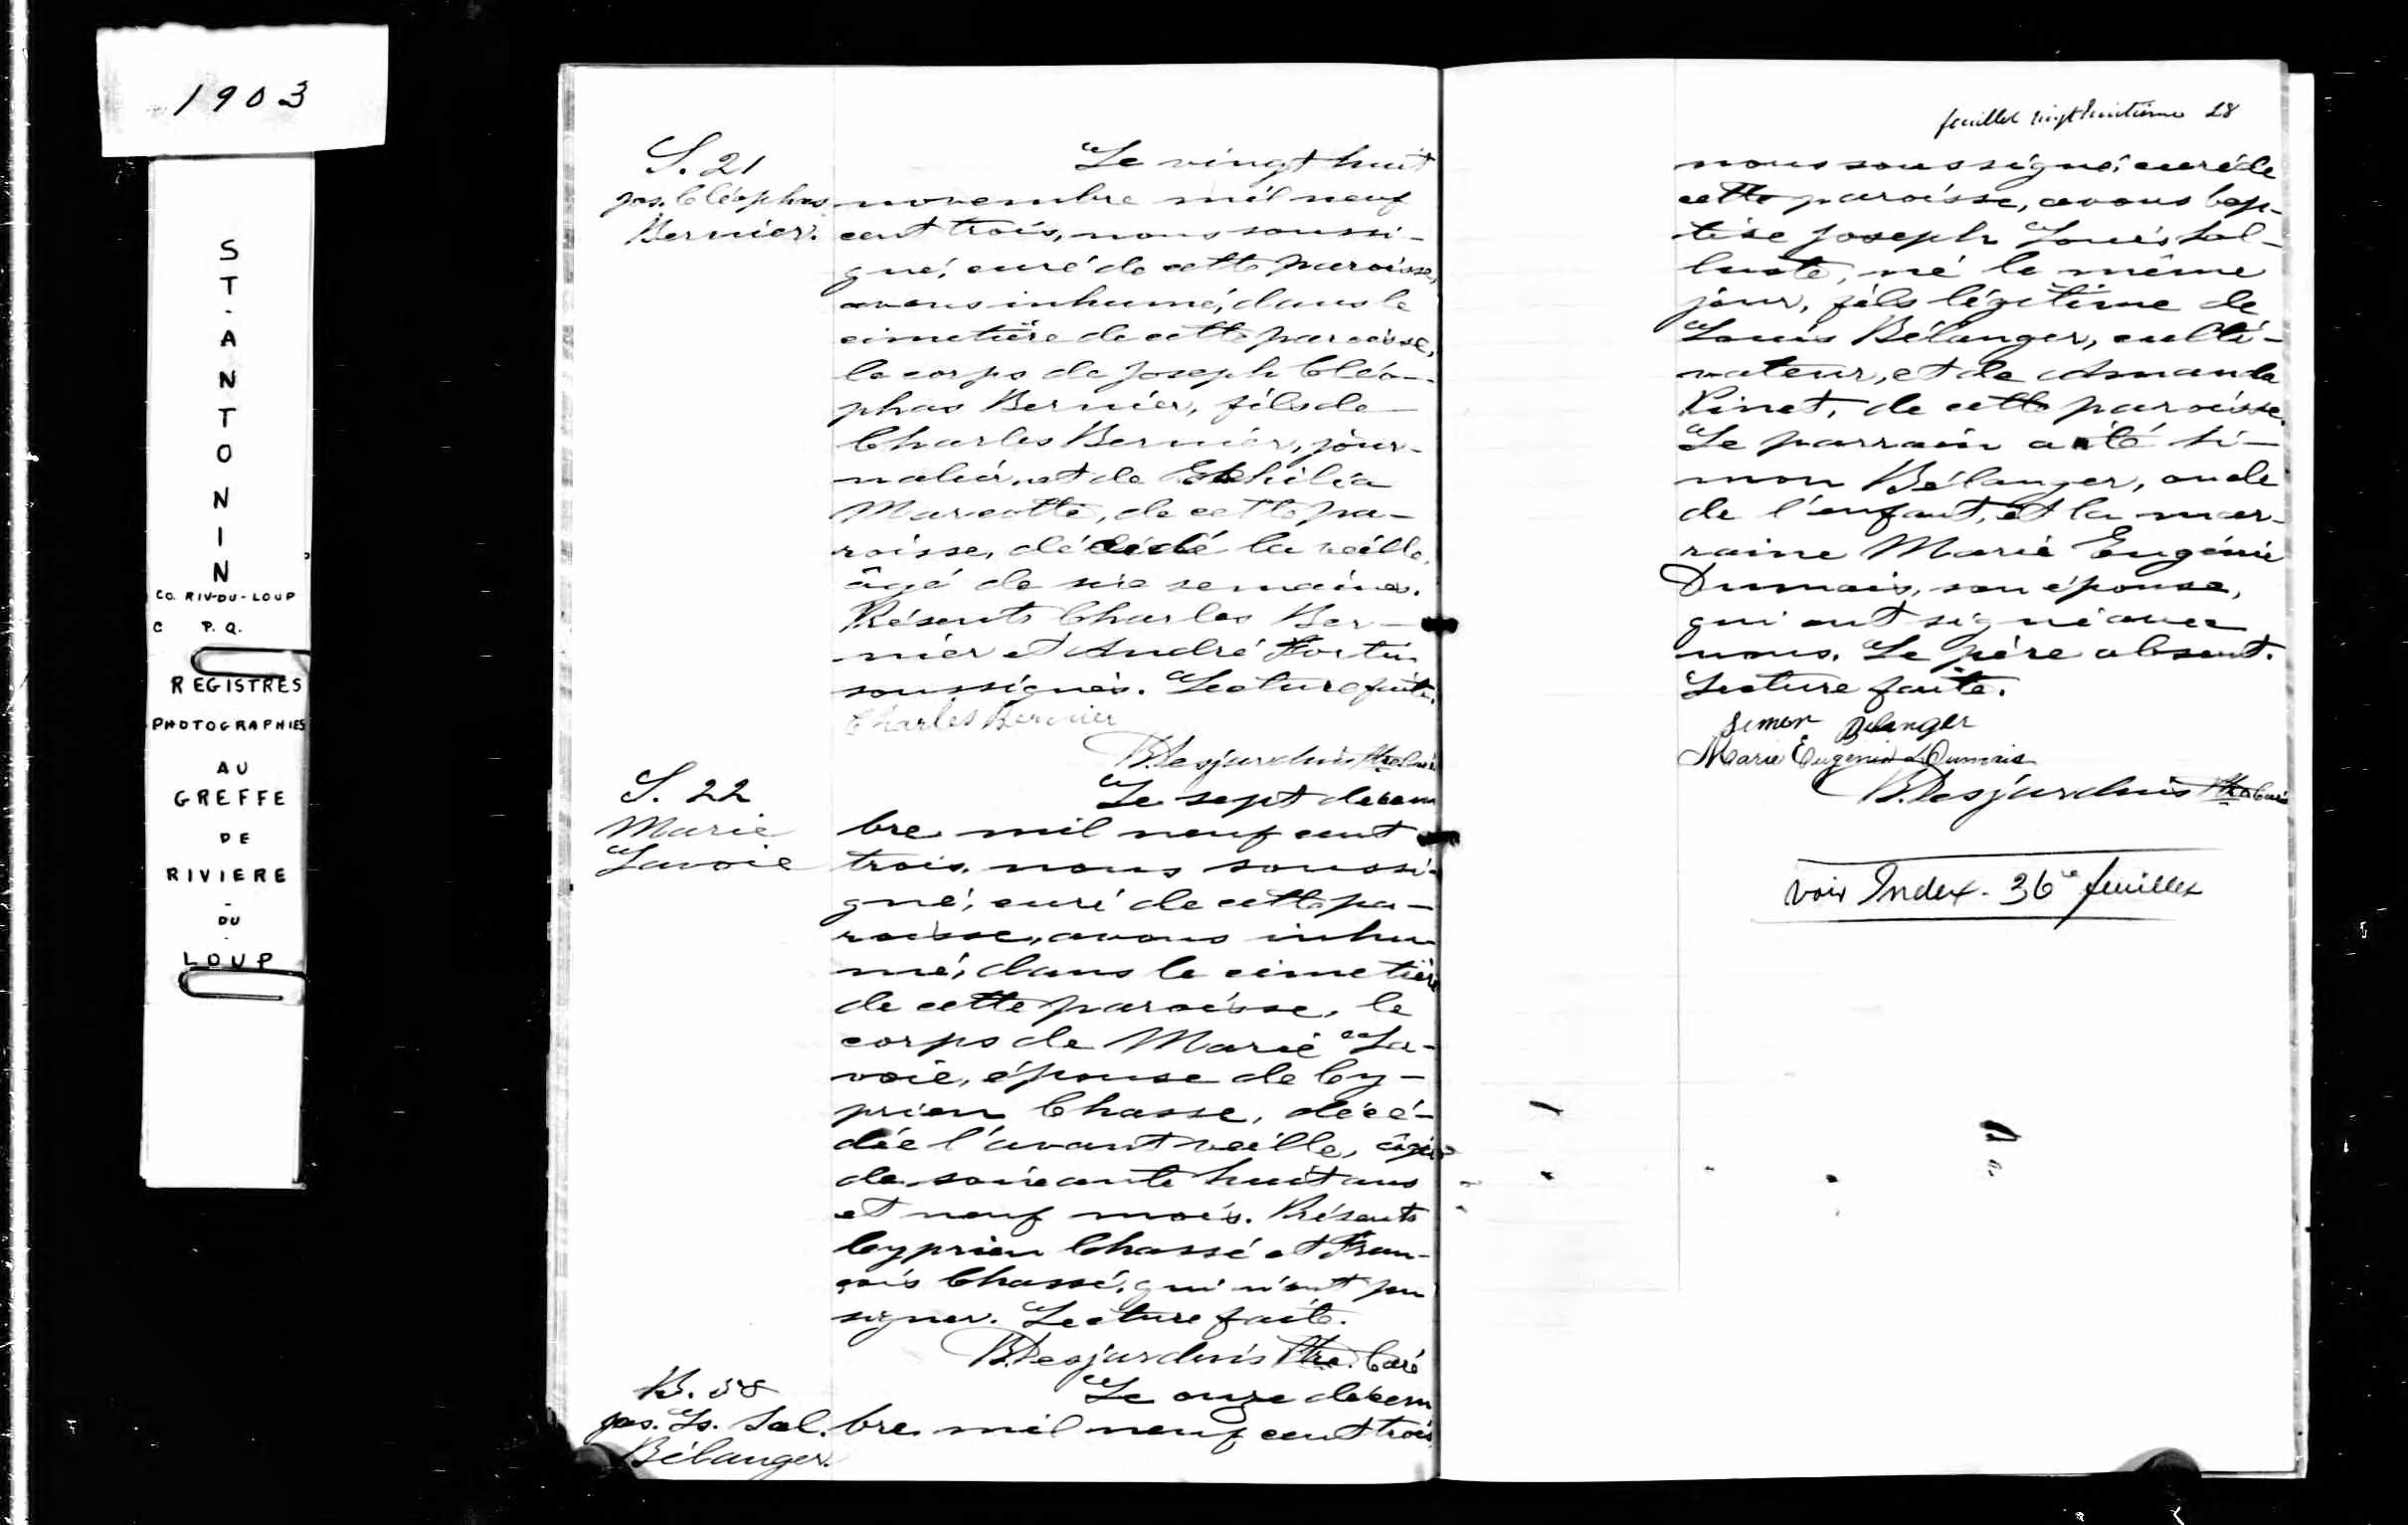 1903
ST. ANTONIN
CO. RIV-DU-LOUP
C P.Q.
REGISTRES
PHOTOGRAPHIES
AU
GREFFE
DE
RIVIERE
-
DU
-
LOUP
S. 21
Jos. Cléophas
Bernier.
Le vingt huit
novembre mil neuf
cent trois, nous soussi-
gné, curé de cette paroisse,
avons inhumé, dans le
cimetière de cette paroisse,
le corps de Joseph Cléo-
phas Bernier, fils de
Charles Bernier, jour-
nalier, et de
Marcotte, de cette pa-
roisse, décédé la veille,
âgé de six semaines.
Présents Charles Ber-
nier et André Fortin
soussignés. Lecture faite.
Charles Bernier
B. Desjardins Ptre Curé
S. 22
Marie
Lavoie
Le sept décem
bre mil neuf cent
trois, nous soussi-
gné, curé de cette pa-
roisse, avons inhu-
mé, dans le cimetière
de cette paroisse, le
corps de Marie La-
voie, épouse de Cy-
prien Chasse, décé-
dée l'avant veille, âgée
de soixante huit ans
et neuf mois. Présents
Cyprien Chassé et Fran-
çois Chassé, qui n'ont pu
signer. Lecture faite.
B. Desjardins Ptre. Curé
B. 58
Jos. Ls. Sal.
Bélanger.
Le onze décem
bre mil neuf cent trois
feuillet vingt huitième 28
nous soussigné, curé de
cette paroisse, avons bap-
tisé Joseph Louis Sal-
luste, né le même
jour, fils légitime de
Louis Bélanger, culti-
vateur, et de Amanda
Pinet, de cette paroisse.
Le parrain a été Si-
mon Bélanger, oncle
de l'enfant, et la mar-
raine Marie Eugénie
Dumais, son épouse,
qui ont signé avec
nous. Le père absent.
Lecture faite.
Simon Belanger
Marie Eugenie Dumais
B. Desjardins Ptre Curé
voir Index - 36e feuillet